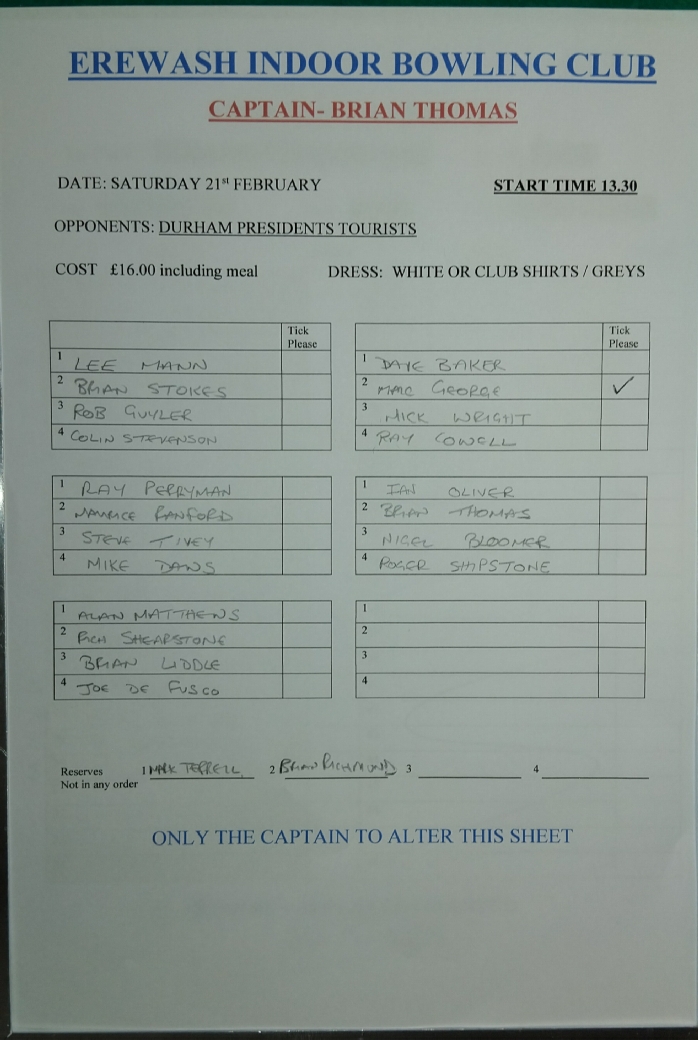 EREWASH INDOOR BOWLING CLUB
CAPTAIN- BRIAN THOMAS
DATE: SATURDAY 21st FEBRUARY START TIME 13.30
OPPONENTS: DURHAM PRESIDENTS TOURISTS
COST £16.00 including meal DRESS: WHITE OR CLUB SHIRTS / GREYS
Tick Please
1 LEE MANN
2 BRIAN STOKES
3 ROB GUYLER
4 COLIN STEVENSON
Tick Please
1 DAVE BAKER
2 MAC GEORGE ✓
3 MICK WRIGHT
4 RAY COWELL
1 RAY PERRYMAN
2 MAURICE RANFORD
3 STEVE TIVEY
4 MIKE DAWS
1 IAN OLIVER
2 BRIAN THOMAS
3 NIGEL BLOOMER
4 ROGER SHIPSTONE
1 ALAN MATTHEWS
2 RICH SHEARSTONE
3 BRIAN LIDDLE
4 JOE DE FUSCO
1
2
3
4
Reserves 1 TERRELL 2 BRIAN RICHMOND 3 4
Not in any order
ONLY THE CAPTAIN TO ALTER THIS SHEET